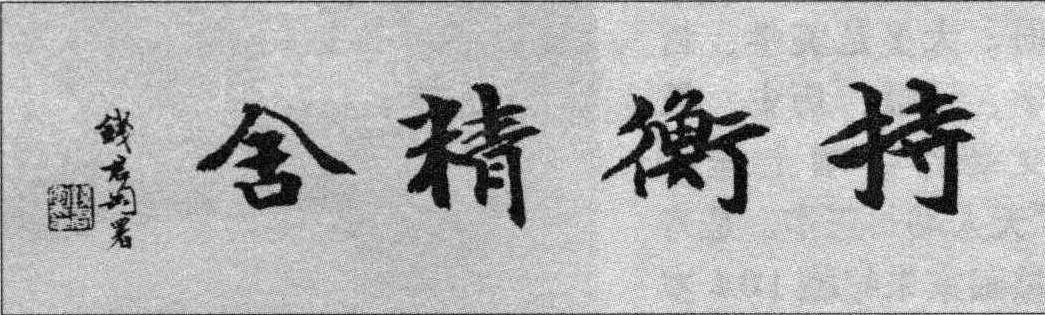 持衡精舍
錢君匋署